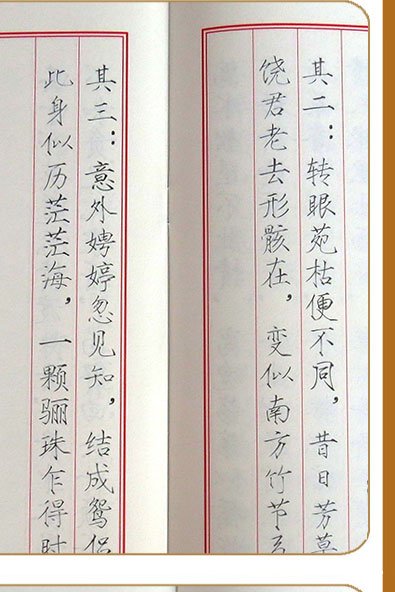 其二：转眼苑枯便不同，昔日芳草
饶君老去形骸在，变似南方竹节
其三：意外娉婷忽见知，结成鸳侣
此身似历茫茫海，一颗骊珠乍得时